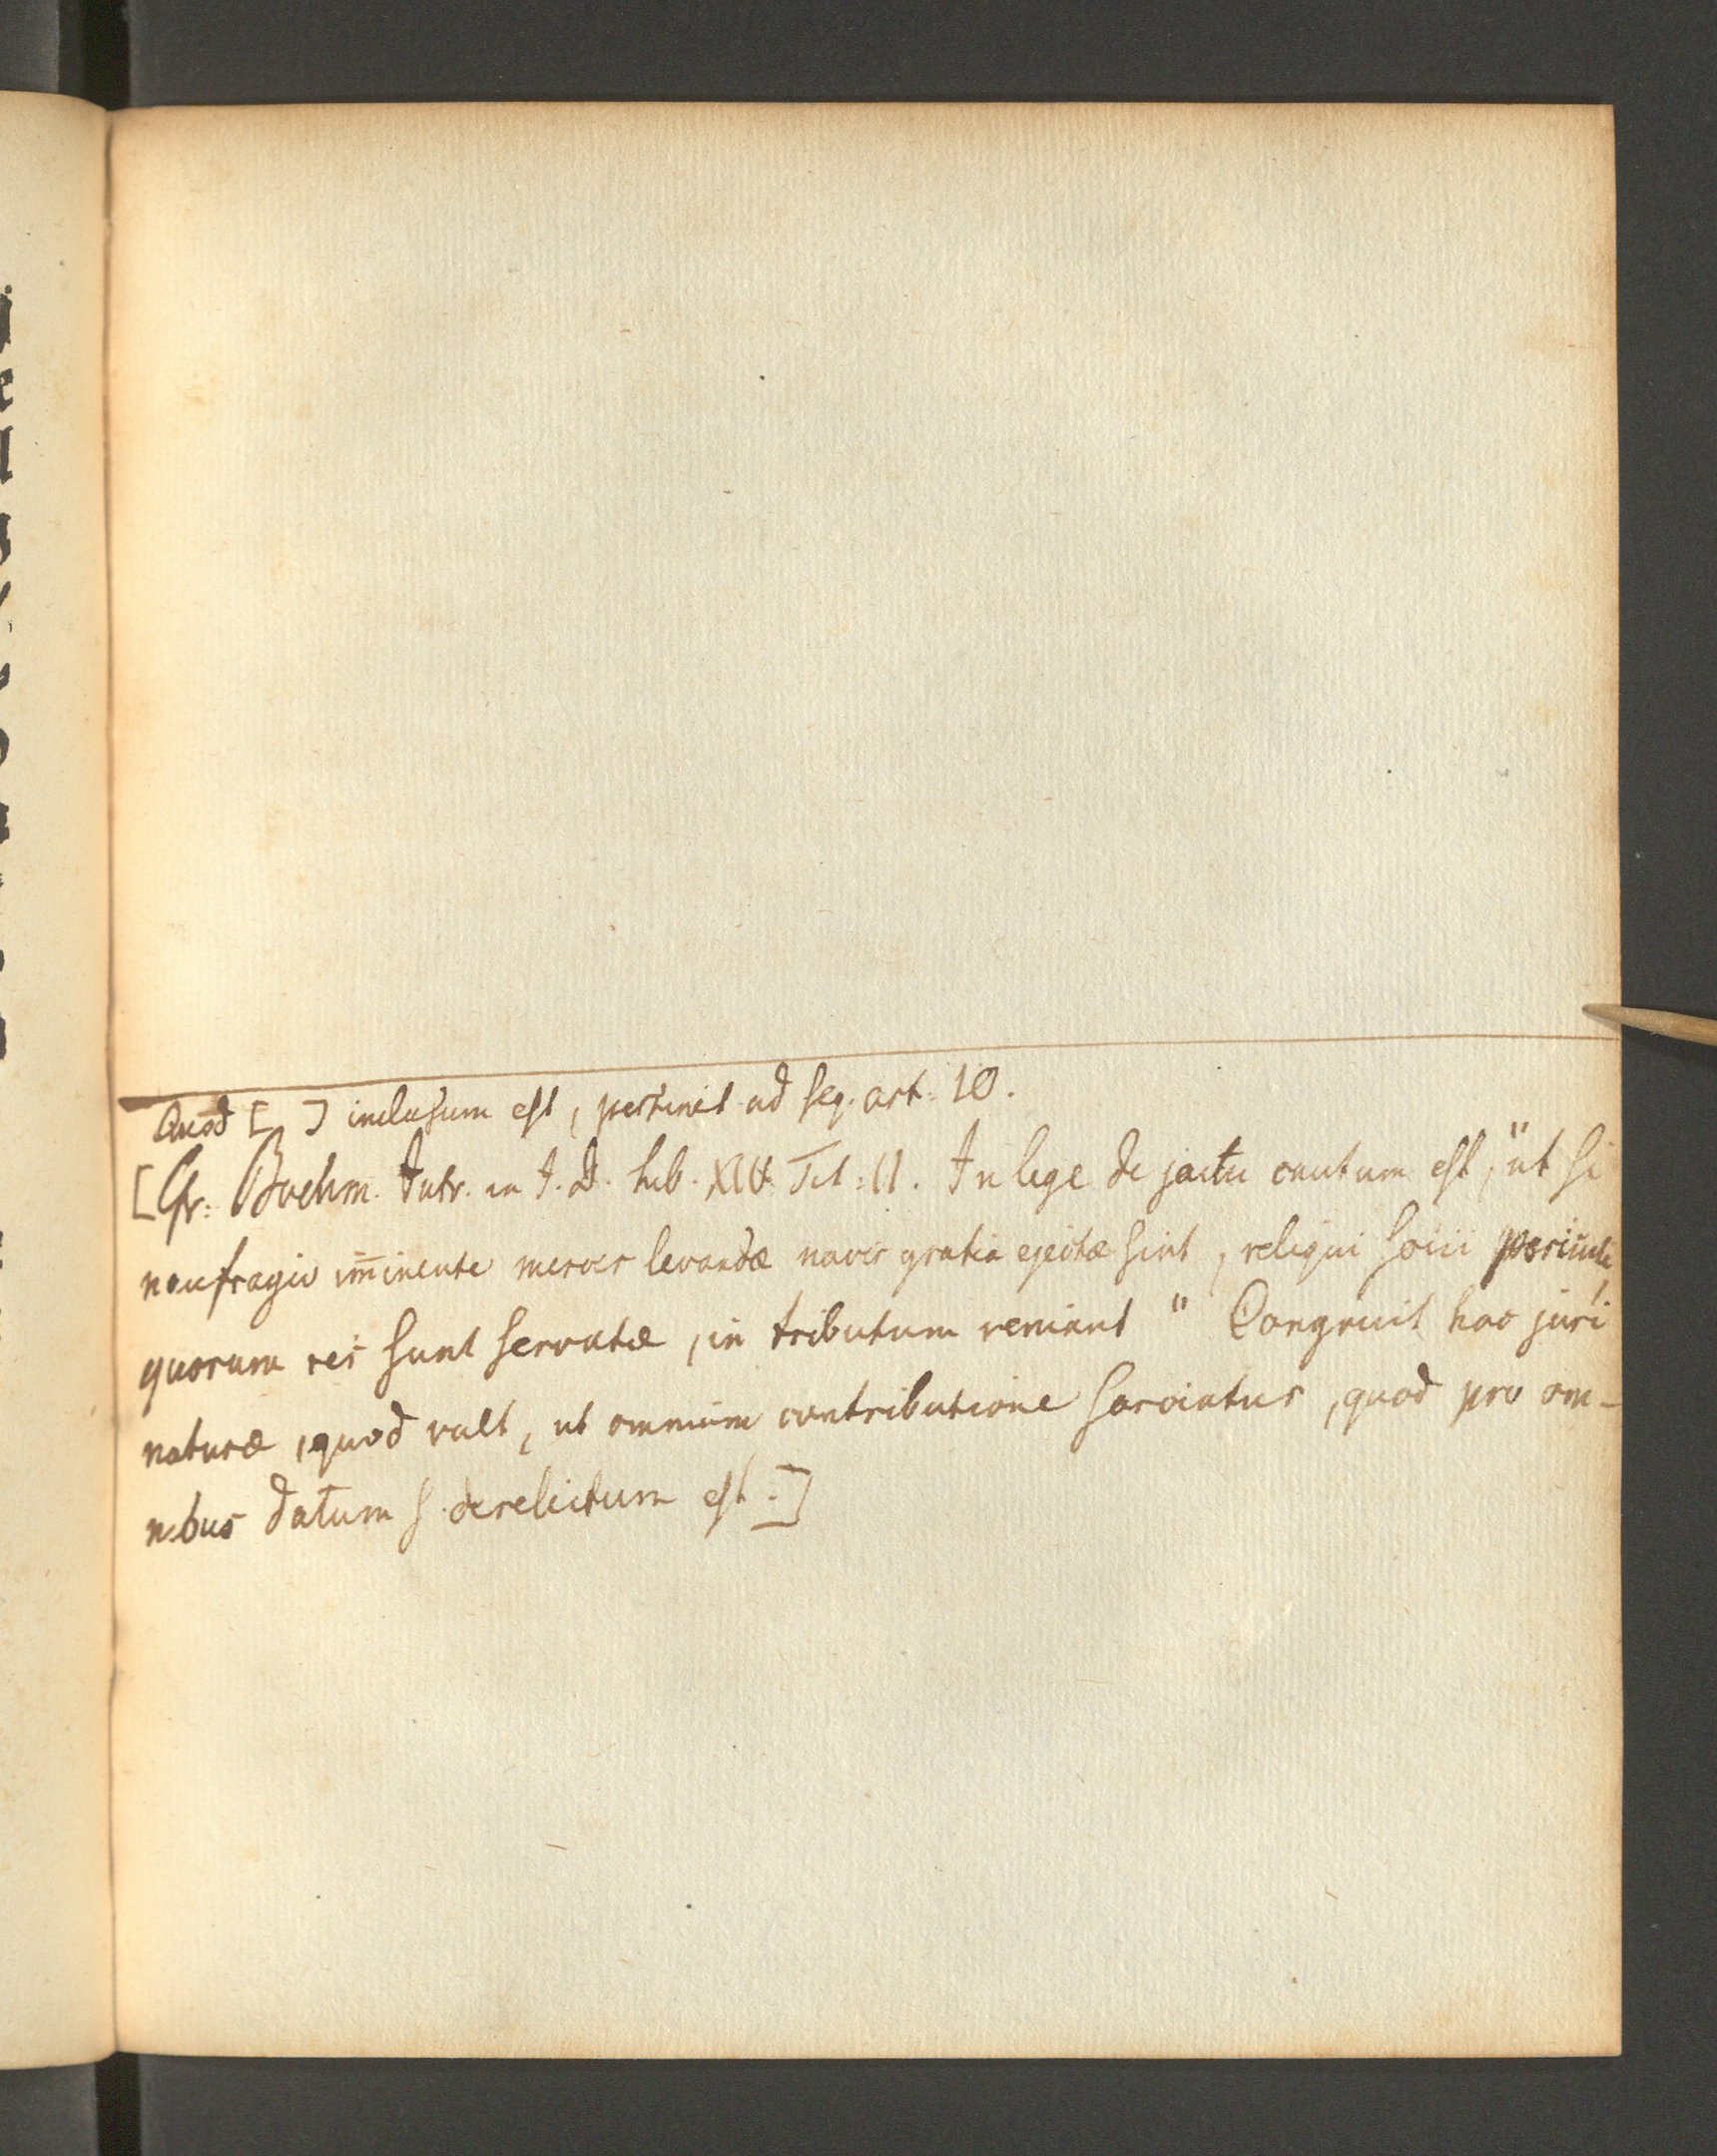 Quod [ ] inclusum est, pertinet ad seq. art. 10.
[Cfr. Boehm. Intr. in I. D. Lib. XIV. Tit: II. In lege de jactu cautum est, "ut si
naufragio im̄inente merces levandæ navis gratia ejectæ sint, reliqui socii periculi,
quorum res sunt servatæ, in tributum veniant" Congruit hoc juri
naturæ, quod vult, ut omnium contributione sarciatur, quod pro om-
nibus datum s. derelictum est.]